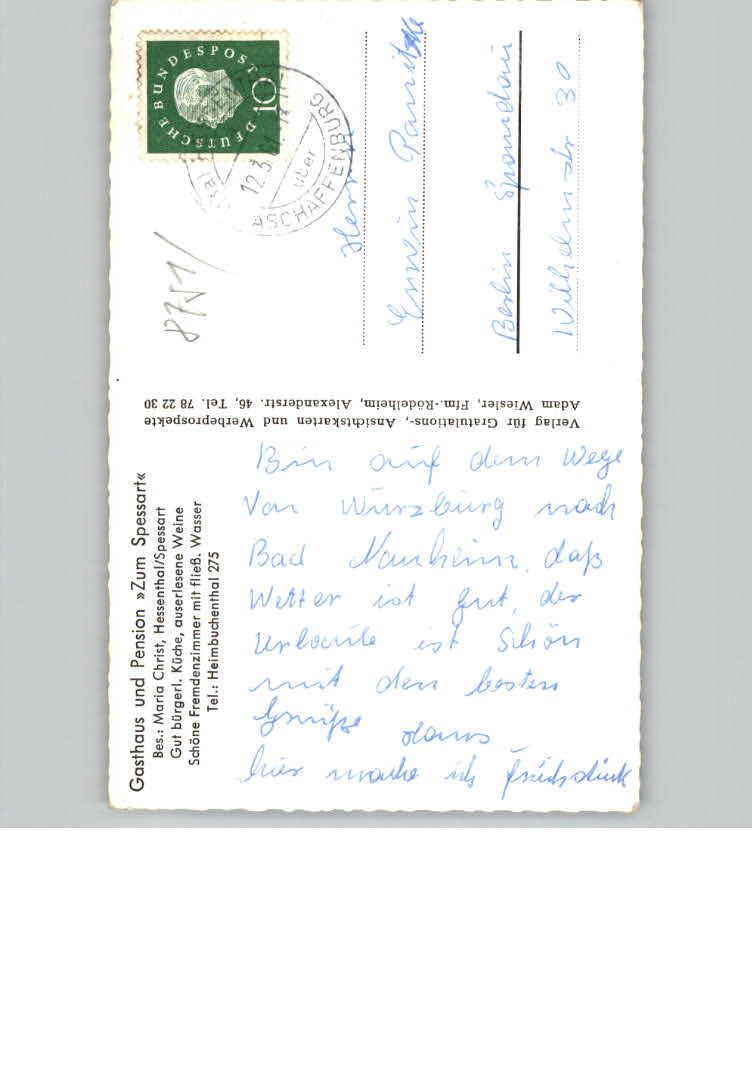 Gasthaus und Pension »Zum Spessart«
Bes.: Maria Christ, Hessenthal/Spessart
Gut bürgerl. Küche, auserlesene Weine
Schöne Fremdenzimmer mit fließ. Wasser
Tel.: Heimbuchenthal 275
Bin auf dem Wege
Von Würzburg nach
Bad Nauheim, daß
Wetter ist gut, der
Urlaub ist Schön
mit den besten
Grüße
hier mache ich Frühstück
Verlag für Gratulations-, Ansichtskarten und Werbeprospekte
Adam Wiesler, Ffm.-Rödelheim, Alexanderstr. 46, Tel. 78 22 30
DEUTSCHE BUNDESPOST
10
12.3.
über
ASCHAFFENBURG
8751
Herrn
Erwin
Berlin Spandau
Wilhelmstr 30